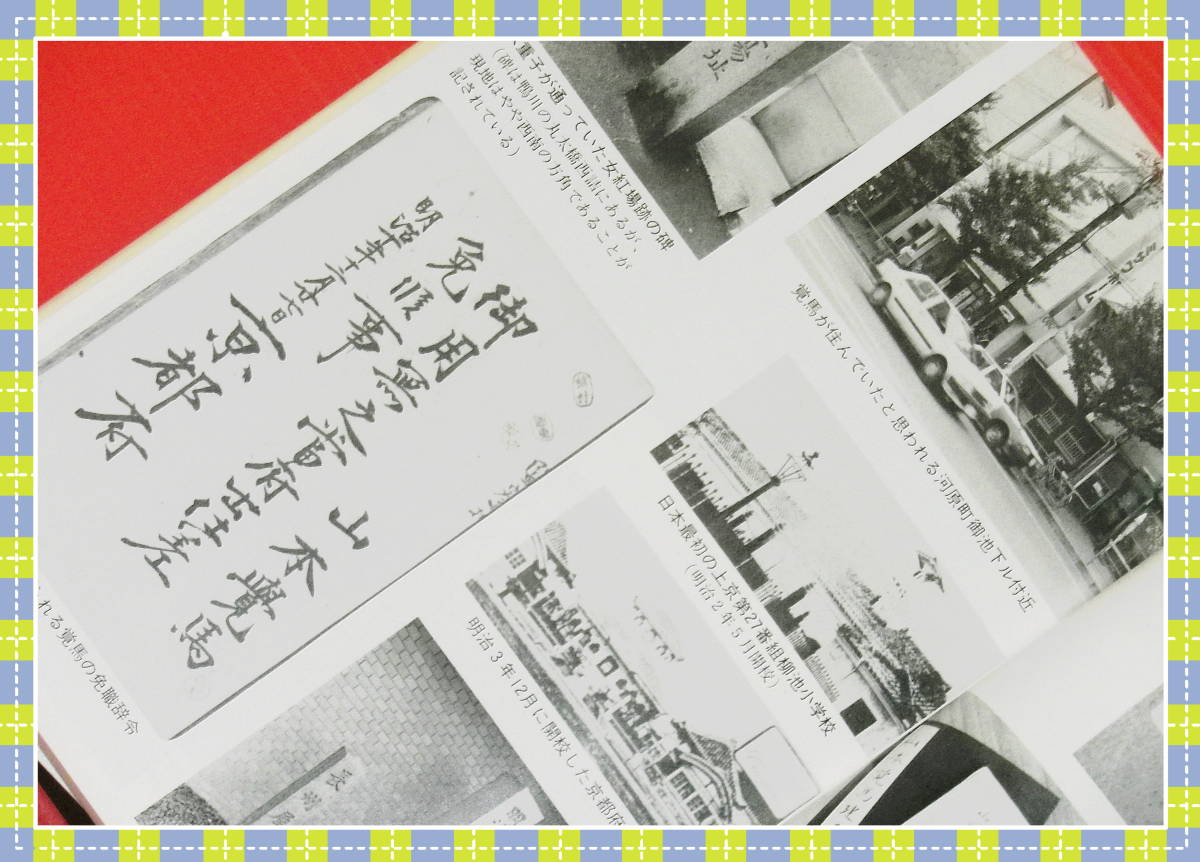 重子が通っていた女紅場跡の碑
(碑は鴨川の丸太橋西詰にあるが、
現地はやや西南の方角であることが
記されている)
覚馬が住んでいたと思われる河原町御池下ル付近
日本最初の上京第27番組柳池小学校
(明治2年5月開校)
明治3年12月に開校した京都府
山本覺馬
御用無之當府出仕差
免候事
明治
京都府
れる覚馬の免職辞令
長州屋
址